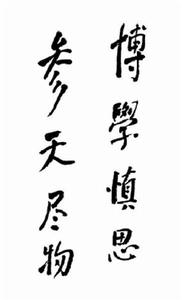 博學慎思
參天尽物